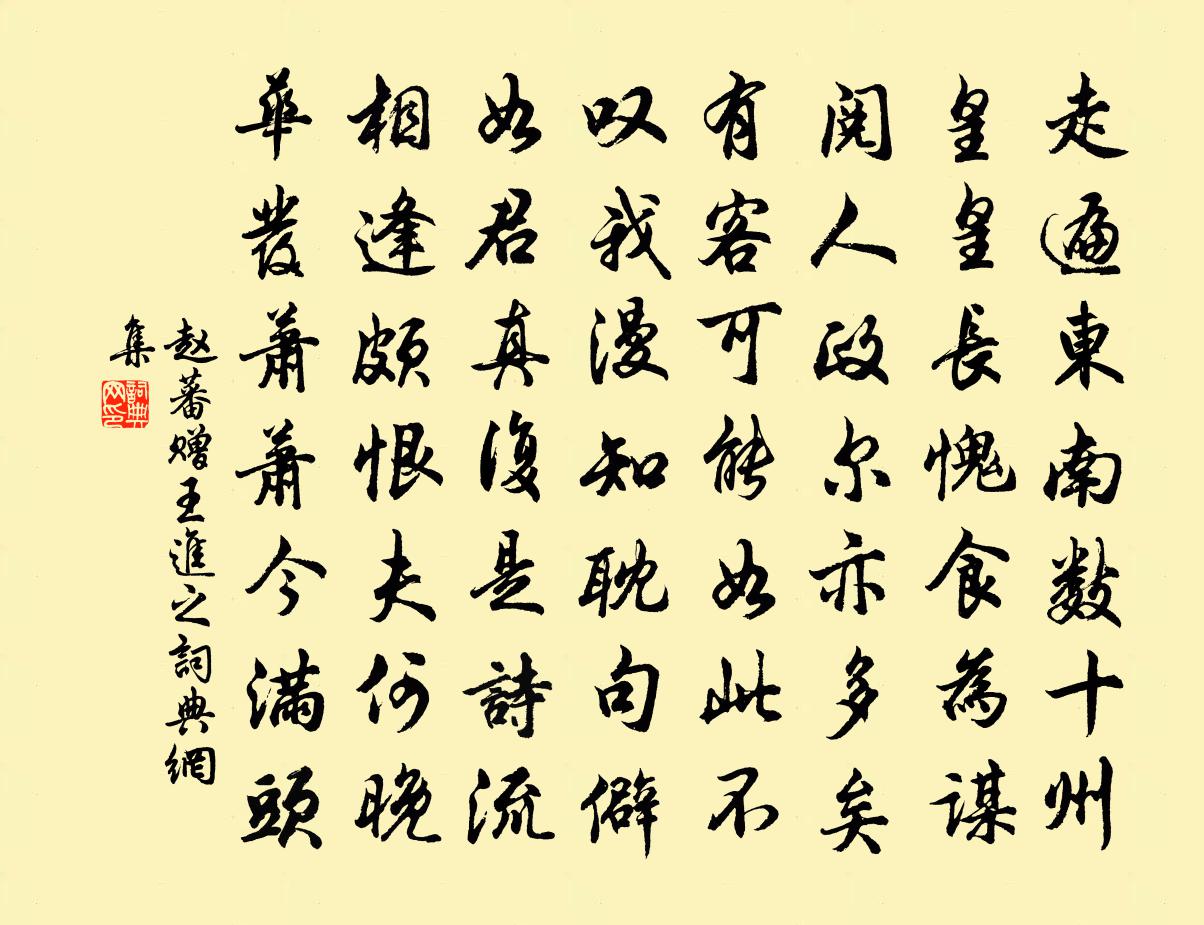 走遍東南數十州
皇皇長愧食為謀
閱人政尔亦多矣
有客可能如此不
叹我漫知耽句僻
如君真復是詩流
相逢頗恨夫何晚
華發蕭蕭今滿頭
赵蕃贈王進之詞典網
集
詞典
网印